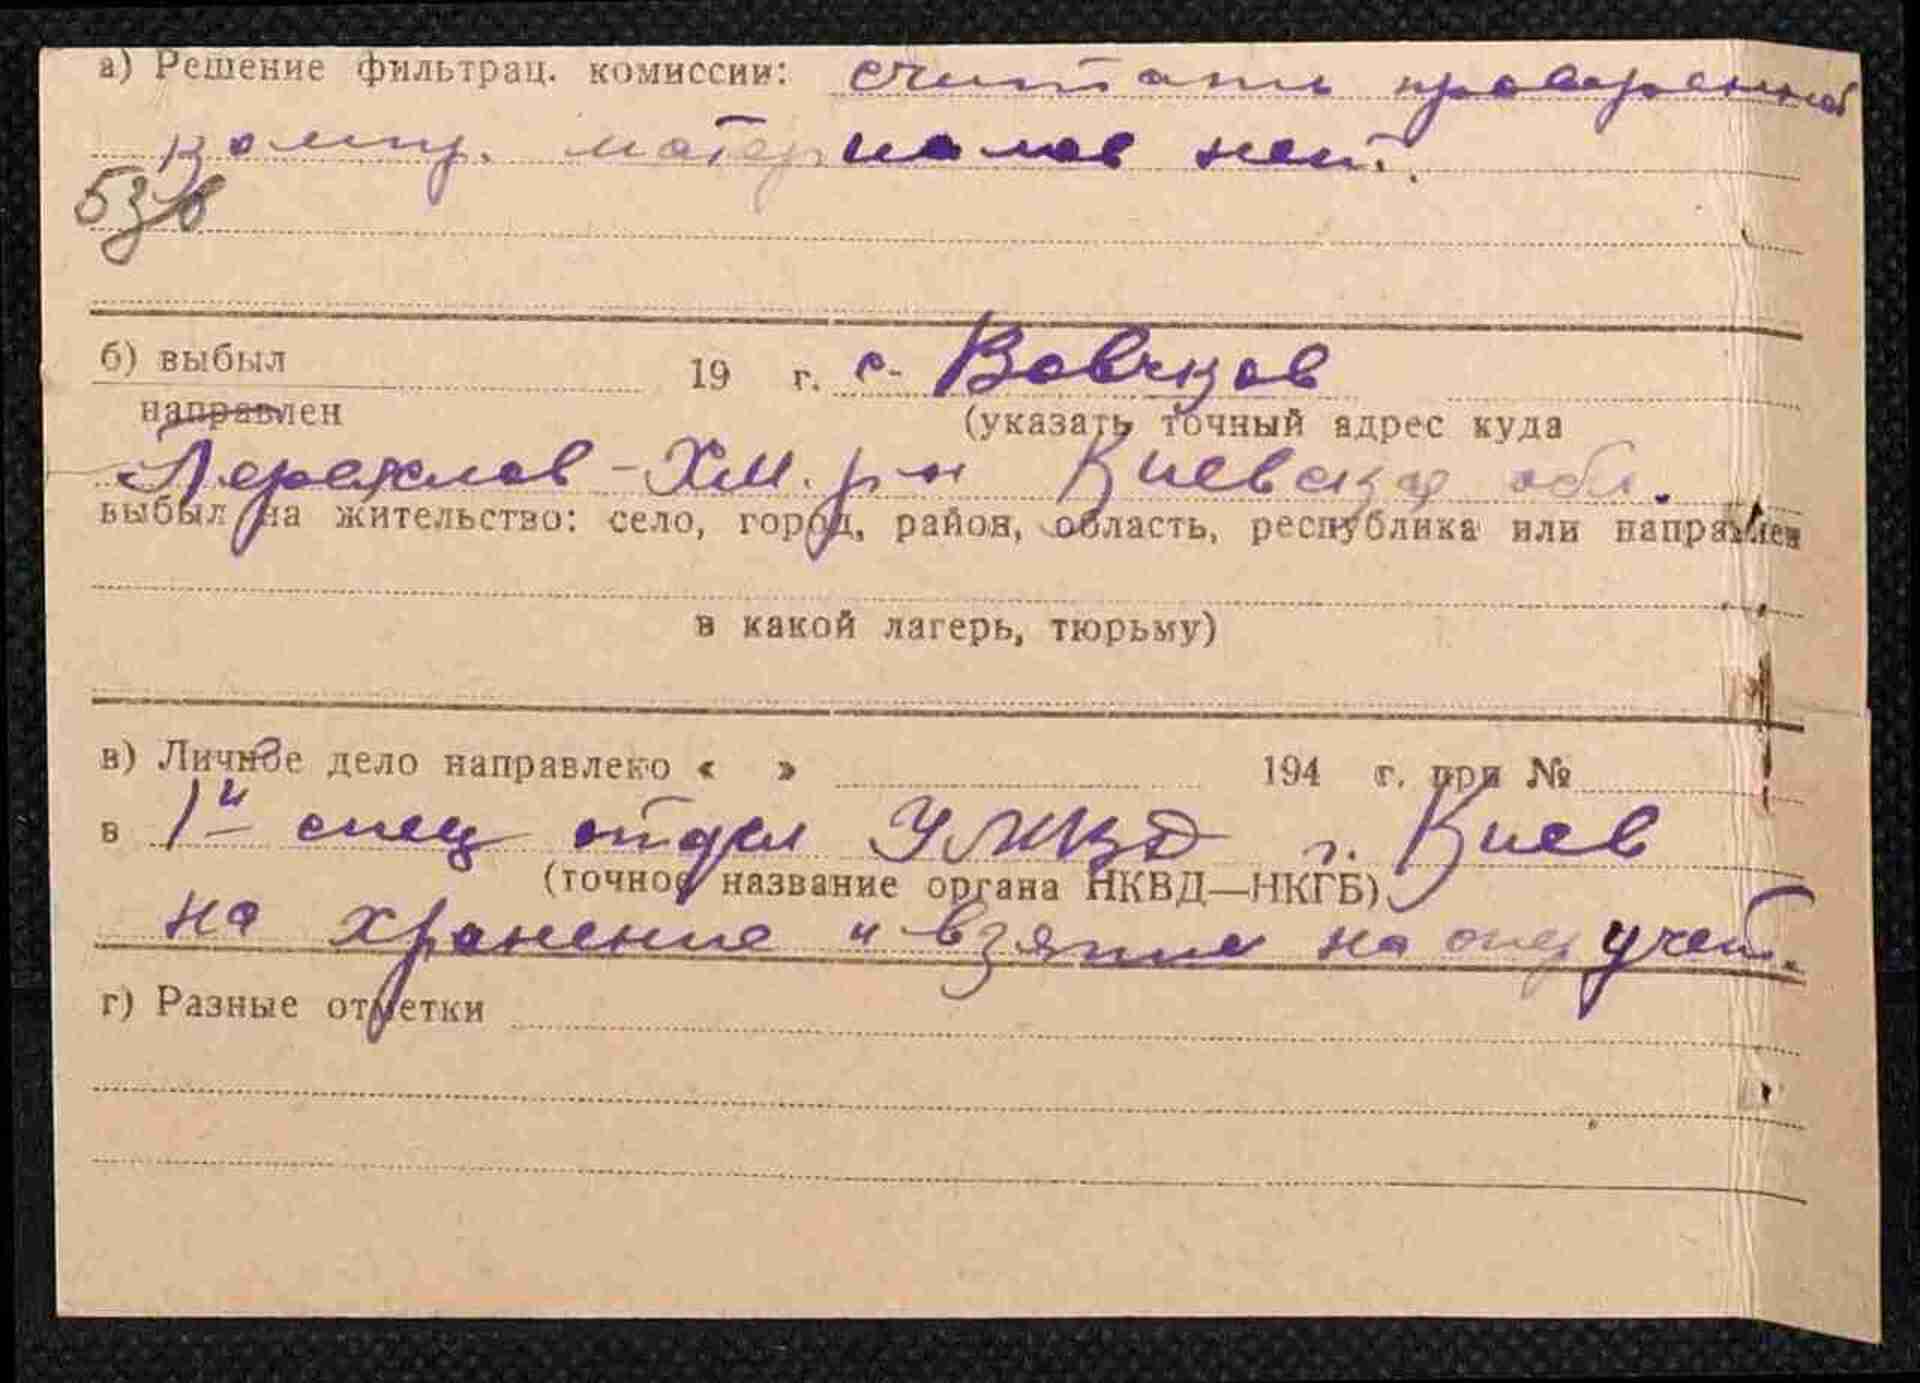 а) Решение фильтрац. комиссии: считать проверенной
комп. материалов нет.
б) выбыл 19 г. с. Вовчков
направлен (указать точный адрес куда
Переяслав-Хм. р-н Киевская обл.
выбыл на жительство: село, город, район, область, республика или направлен
в какой лагерь, тюрьму)
в) Личное дело направлено « » 194 г. при №
в 1й спец отдел УМВД г. Киев
(точное название органа НКВД—НКГБ)
на хранение и взятие на опер учет.
г) Разные отметки